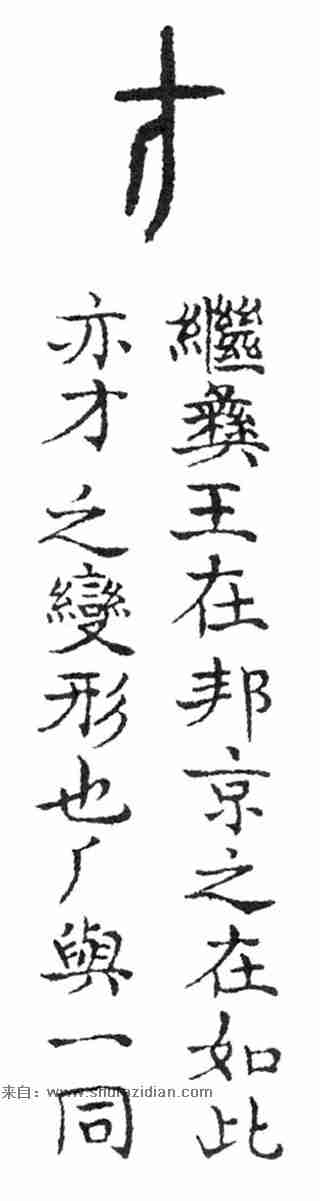 繼彝王在邦京之在如此
亦才之變形也厂與一同
来自：www.shufazidian.com